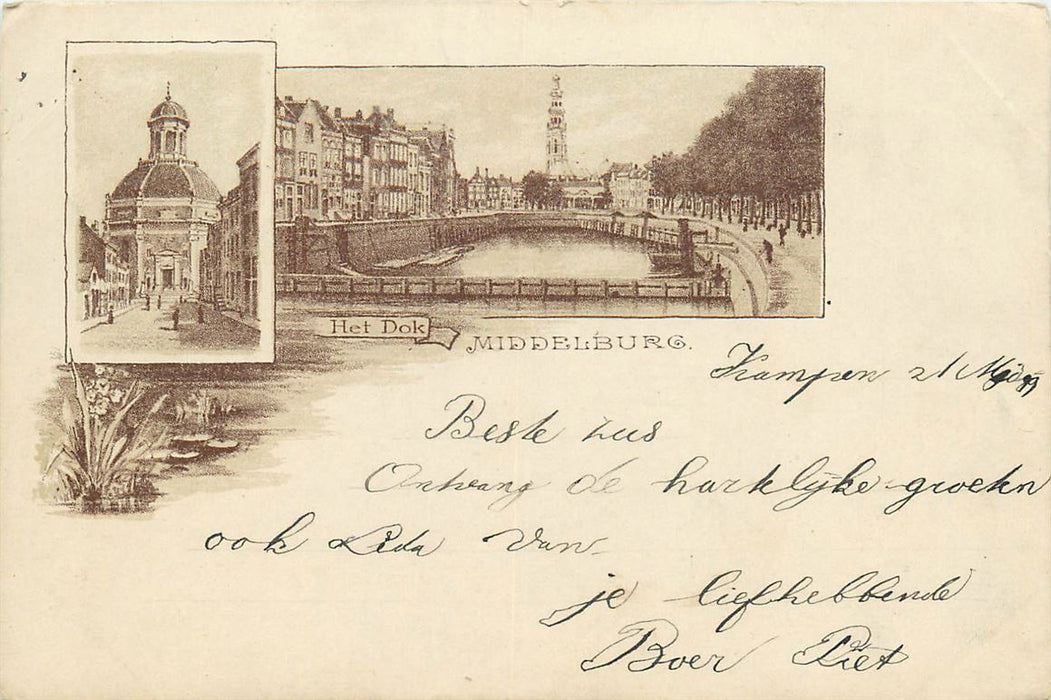 Het Dok
MIDDELBURG.
Kampen 21 Mei 99
Beste zus
Ontvang de hartelijke groeten
ook Leda van
je liefhebbende
Boer Piet